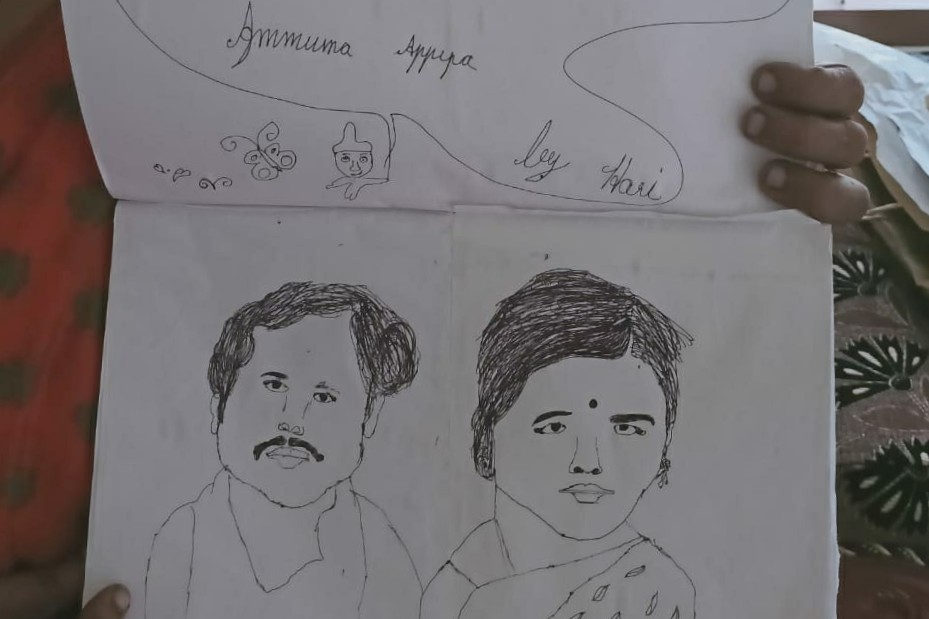 Ammuma Appupa
by Hari